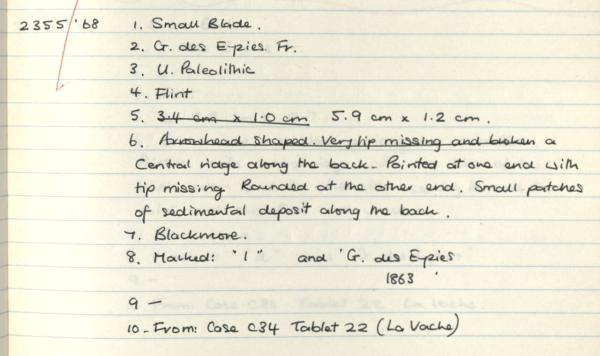 2355 '68 1. Small Blade.
2. G. des Eyzies. Fr.
3. U. Paleolithic
4. Flint
5. 3.4 cm x 1.0 cm 5.9 cm x 1.2 cm.
6. Arrowhead shaped. Very tip missing and broken a
Central ridge along the back. Pointed at one end with
tip missing. Rounded at the other end. Small patches
of sedimental deposit along the back.
7. Blackmore.
8. Marked: "1" and 'G. des Eyzies
1863 '
9 —
10. From: Case C34 Tablet 22 (La Vache)